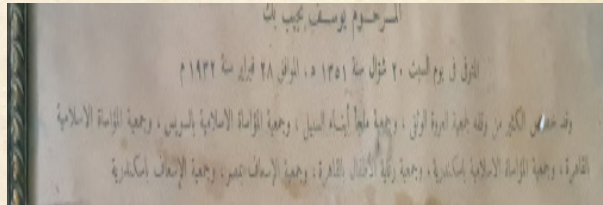 المرحوم يوسف نجيب بك
المتوفى في يوم السبت ٢٠ شوال سنة ١٣٥١ هـ، الموافق ٢٨ فبراير سنة ١٩٣٢ م
وقد خصص الكثير من وقته لجمعية العروة الوثقى ، وجمعية ملجأ أبناء السبيل ، وجمعية المؤاساة الاسلامية بالسويس ، وجمعية المؤاساة الاسلامية
بالقاهرة ، وجمعية المؤاساة الاسلامية باسكندرية ، وجمعية رعاية الأطفال بالقاهرة ، وجمعية الإسعاف بمصر ، وجمعية الإسعاف باسكندرية